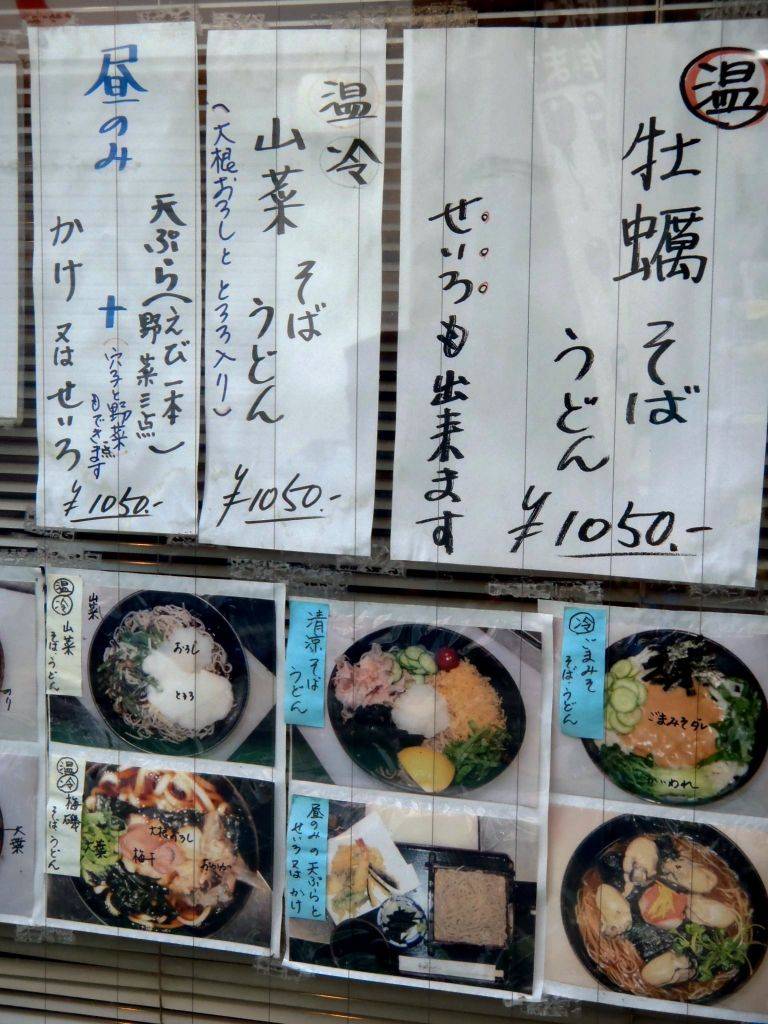 温
牡蠣そば
うどん
せいろも出来ます
¥1050.-
温
冷
山菜そば
うどん
(大根おろしととろろ入り)
¥1050.-
昼のみ
天ぷら(えび一本
野菜三点)
+
(穴子と野菜
もできます
かけ又はせいろ
¥1050.-
温
冷
山菜
そば
うどん
山菜
おろし
とろろ
清涼そば
うどん
冷
ごまみそ
そば・うどん
ごまみそダレ
かいわれ
のり
大葉
温
冷
梅磯
そば
うどん
大根おろし
大葉
梅干
おかか
昼のみの天ぷらと
せいろ又はかけ